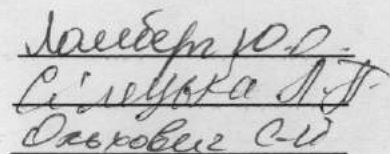 Ламберг Ю.О.
Сілецька Л.П.
Олькович С-М